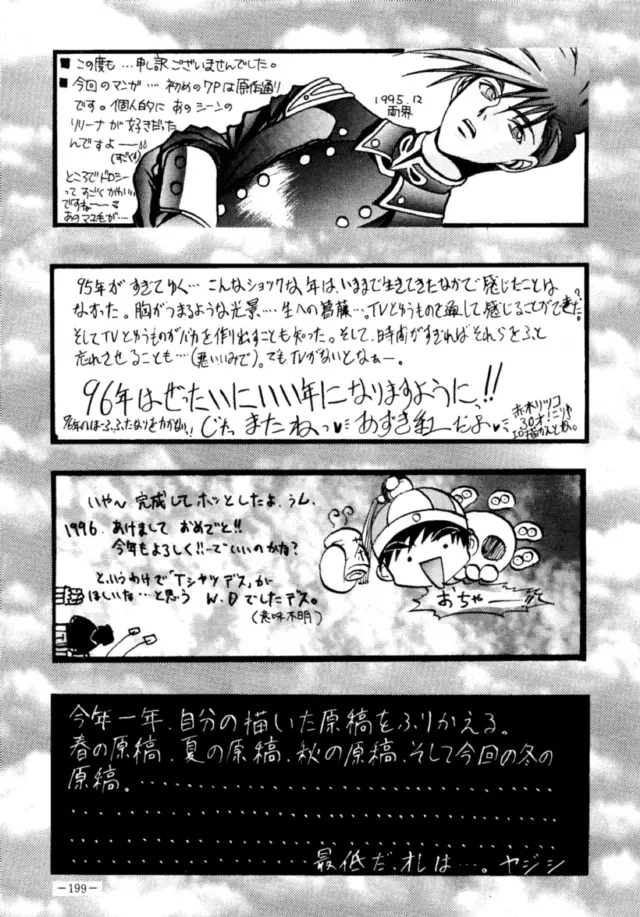 ■この度も…申し訳ございませんでした。
■今回のマンガ…初めの7Pは原作通り
です。個人的に あのシーンの
リリーナが好きだった
んですよ──
ところでドロシー
って すごく かわいい
ですね──
あのマユ毛が…
1995.12
95年がすぎてゆく…こんなショックな年は、いままで生きてきたなかで感じたことは
なかった。胸がつまるような光景…生への葛藤…。TVというものを通して感じることができた。
そしてTVというものがバカを作り出すことも知った。そして、時間がすぎればそれらをふと
忘れさせることも…(悪いいみで)。でもTVがないとなぁー。
96年はぜったいにいい年になりますように!!
じゃ またねっ♥ あずき紅 だよ♥
赤木リツコ
30才!
いやー 完成してホッとしたよ、うん。
1996. あけまして おめでと!!
今年もよろしく!!…でいいのかな?
というわけで「Tシャツデス」が
ほしいな…と思う W.Dでしたデス。
(意味不明)
おちゃー
今年一年、自分の描いた原稿をふりかえる。
春の原稿、夏の原稿、秋の原稿、そして今回の冬の
原稿。…………………………
…………………………………
…………………………………
……………最低だ、オレは…。ヤジシ
－199－